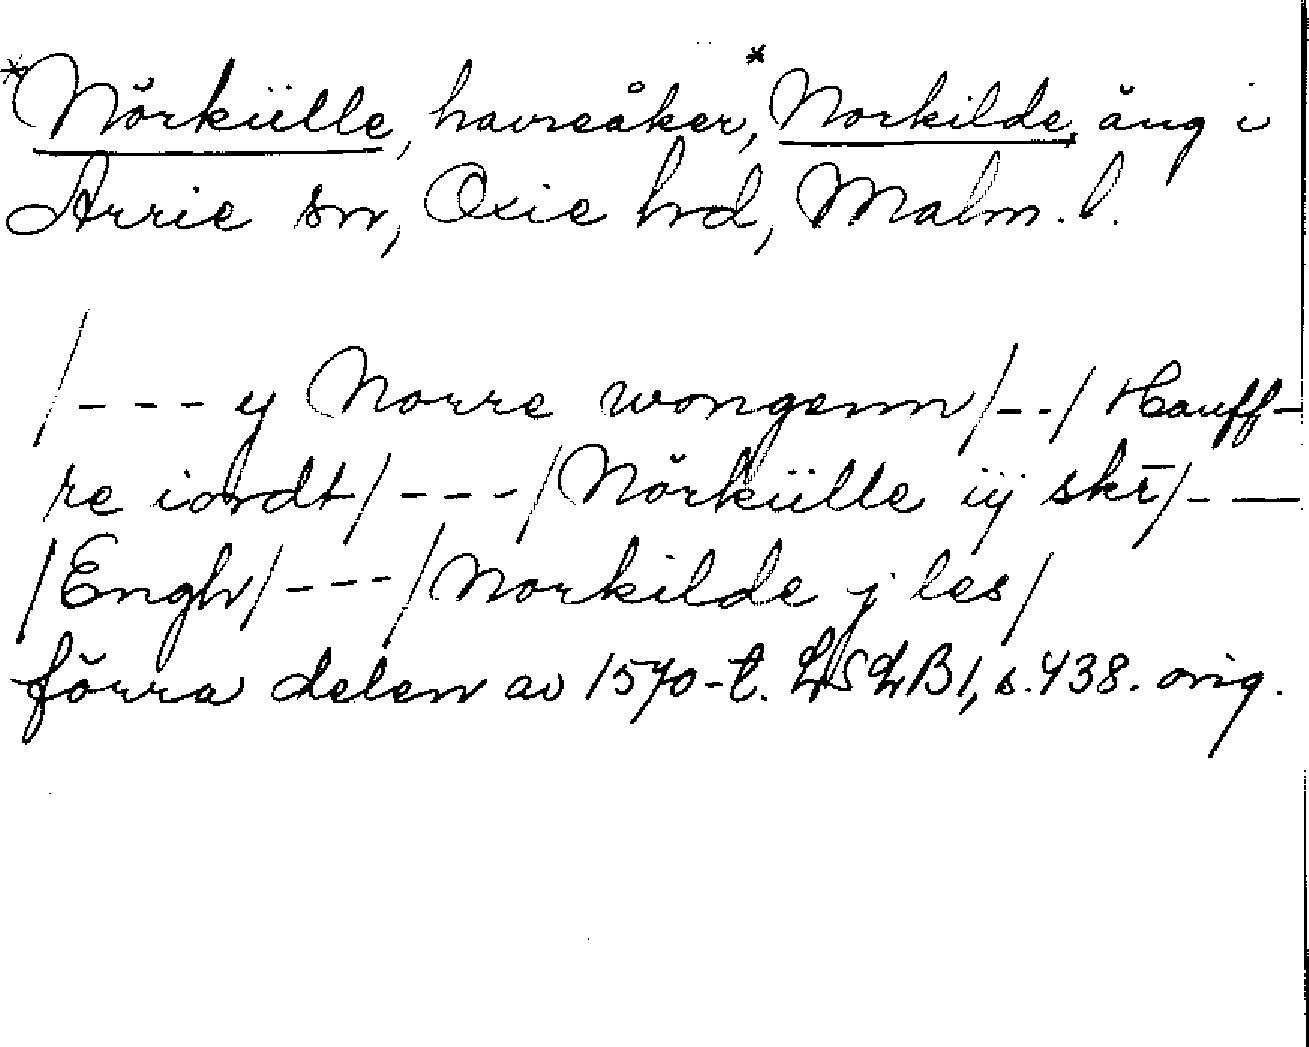 *Nörkülle, havreåker, *Norkilde, äng i
Arrie sn, Oxie hd, Malm. l.
/--- y Norre wongenn/--/ Hauff-
re iordt/ --- /Nörkülle ÿ skr̄/--
/Engh/ --- /Norkilde j les/
förra delen av 1570-t. LSLB1, s.438. orig.